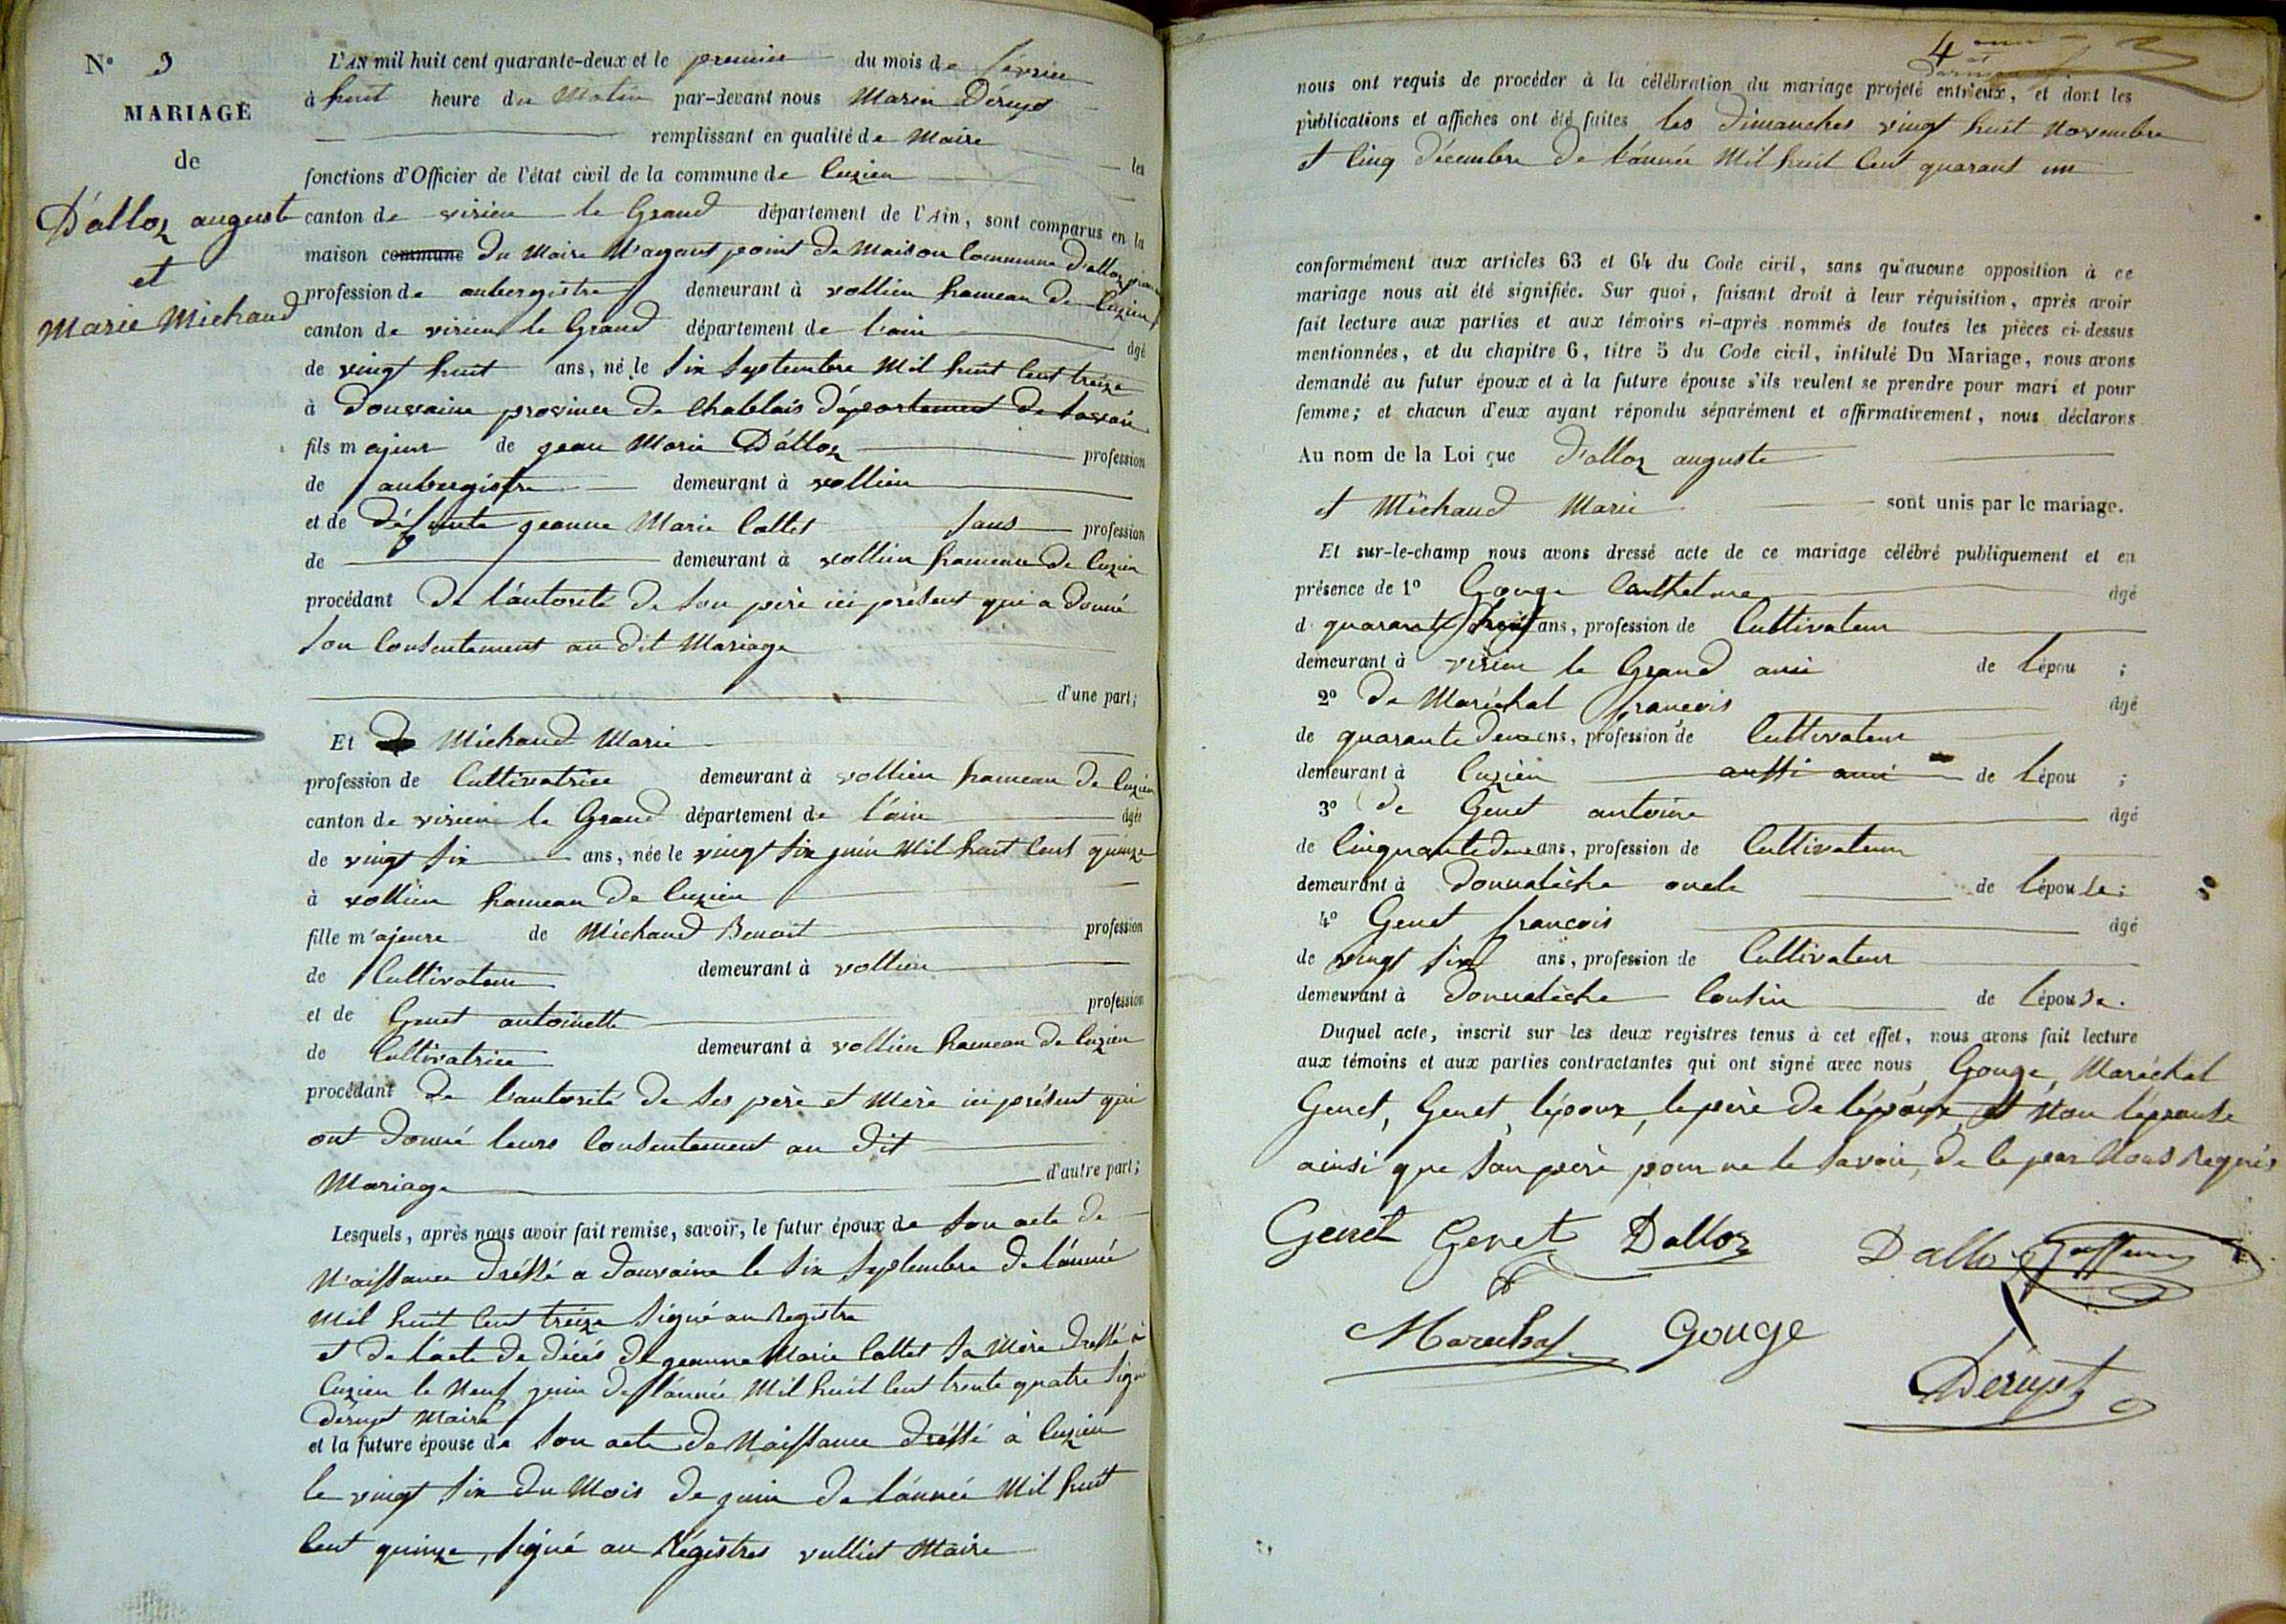 N° 3
MARIAGE
de
D'alloz auguste
et
Marie Michaud
L'AN mil huit cent quarante-deux et le premier du mois de février
à huit heure du Matin par-devant nous Marin Déruget
remplissant en qualité de Maire les
fonctions d'Officier de l'état civil de la commune de Cuzieu
canton de virieu le Grand département de l'Ain, sont comparus en la
maison commune du Maire N'ayant point de Maison Commune D'alloz
profession de aubergiste demeurant à vollien hameau de Cuzieu
canton de virieu le Grand département de l'ain âgé
de vingt huit ans, né le six Septembre Mil huit Cent treize
à Douvaine province de Chablais département de Savoie
fils majeur de jean Marie D'alloz profession
de aubergiste demeurant à vollien
et de défunte jeanne Marie Cottet sans profession
de demeurant à vollien hameau de Cuzieu
procédant de l'autorité de son père ici présent qui a donné
son Consentement au dit Mariage
d'une part;
Et Michaud Marie
profession de Cultivatrice demeurant à vollien hameau de Cuzieu
canton de virieu le Grand département de l'ain âgée
de vingt six ans, née le vingt six juin Mil huit Cent quinze
à vollien hameau de Cuzieu
fille m'ajeure de Michaud Benoit profession
de Cultivateur demeurant à vollien
et de Genet antoinette profession
de Cultivatrice demeurant à vollien hameau de Cuzieu
procédant de l'autorité de ses père et Mère ici présent qui
ont donné leurs Consentement au dit
Mariage d'autre part;
Lesquels, après nous avoir fait remise, savoir, le futur époux de son acte de
N'aissance dréssé a Douvaine le six Septembre de l'année
Mil huit Cent treize signé au Registre
et de l'acte de décés de jeanne Marie Cottet sa Mère dressé à
Cuzieu le Neuf juin de l'année Mil huit Cent trente quatre signé
Déruget Maire
et la future épouse de son acte de Naissance dréssé à Cuzieu
le vingt six du Mois de juin de l'année Mil huit
Cent quinze, signé au Régistres vulliet Maire
4
nous ont requis de procéder à la célébration du mariage projeté entr'eux, et dont les
publications et affiches ont été faites les Dimanches vingt huit Novembre
et Cinq décembre de l'année Mil huit Cent quarant un
conformément aux articles 63 et 64 du Code civil, sans qu'aucune opposition à ce
mariage nous ait été signifiée. Sur quoi, faisant droit à leur réquisition, après avoir
fait lecture aux parties et aux témoins ci-après nommés de toutes les pièces ci-dessus
mentionnées, et du chapitre 6, titre 5 du Code civil, intitulé Du Mariage, nous avons
demandé au futur époux et à la future épouse s'ils veulent se prendre pour mari et pour
femme; et chacun d'eux ayant répondu séparément et affirmativement, nous déclarons
Au nom de la Loi que D'alloz auguste
et Michaud Marie sont unis par le mariage.
Et sur-le-champ nous avons dressé acte de ce mariage célébré publiquement et en
présence de 1° Gouge Canthelme âgé
d quarante huit ans, profession de Cultivateur
demeurant à virieu le Grand ami de l'épou ;
2° de Maréchal françois âgé
de quarante deux ans, profession de Cultivateur
demeurant à Cuzieu aussi ami de l'épou ;
3° de Genet antoine âgé
de Cinquante deux ans, profession de Cultivateur
demeurant à Donnalèche oncle de l'épouse;
4° Genet françois âgé
de vingt six ans, profession de Cultivateur
demeurant à Donnalèche Cousin de l'épouse.
Duquel acte, inscrit sur les deux registres tenus à cet effet, nous avons fait lecture
aux témoins et aux parties contractantes qui ont signé avec nous, Gouge, Maréchal
Genet, Genet, l'époux, le père de l'époux, et Non l'épouse
ainsi que son père pour ne le savoir, de le par Nous Requis
Genet Genet Dalloz Dalloz
Marechal Gouge
Deruget